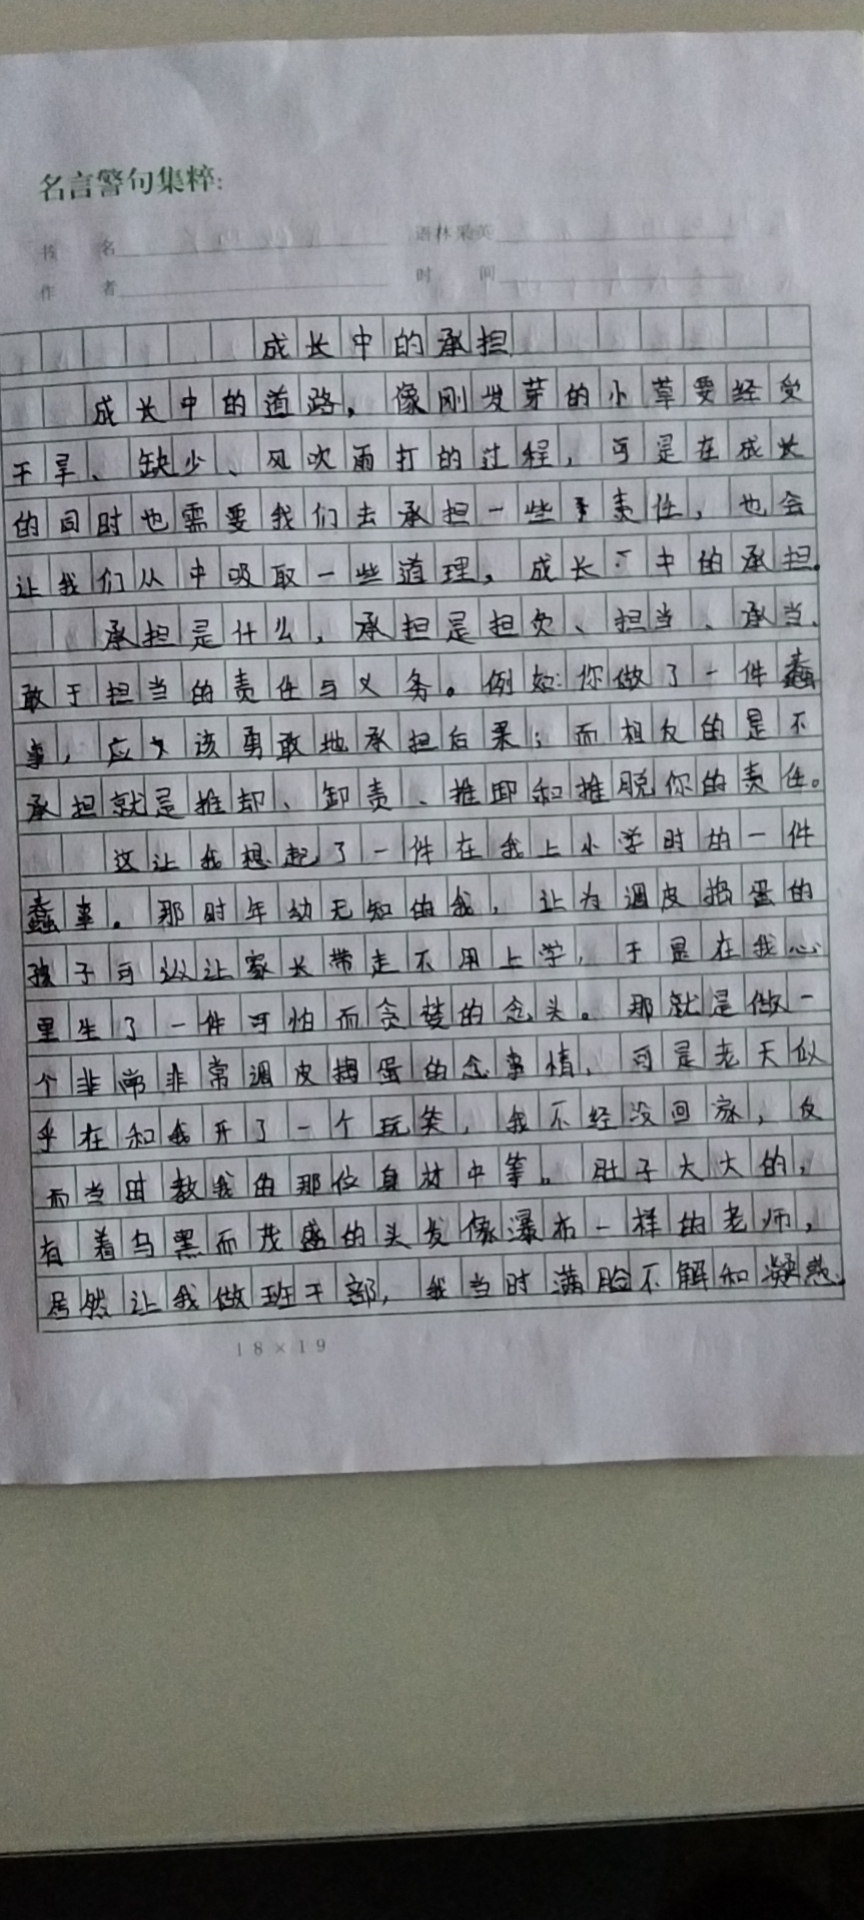 名言警句集粹:
书 名 语林采英
作 者 时 间
成长中的承担
成长中的道路，像刚发芽的小草要经受
干旱、缺少、风吹雨打的过程，可是在成长
的同时也需要我们去承担一些责任，也会
让我们从中吸取一些道理，成长中的承担。
承担是什么，承担是担负、担当、承当、
敢于担当的责任与义务。例如:你做了一件蠢
事，应该勇敢地承担后果；而相反的是不
承担就是推却、卸责、推卸和推脱你的责任。
这让我想起了一件在我上小学时的一件
蠢事。那时年幼无知的我，让为调皮捣蛋的
孩子可以让家长带走不用上学，于是在我心
里生了一件可怕而贪婪的念头。那就是做一
个非常非常调皮捣蛋的念事情，可是老天似
乎在和我开了一个玩笑，我不经没回家，反
而当时教我的那位身材中等。肚子大大的，
有着乌黑而茂盛的头发像瀑布一样的老师，
居然让我做班干部，我当时满脸不解和凝惑。
18×19